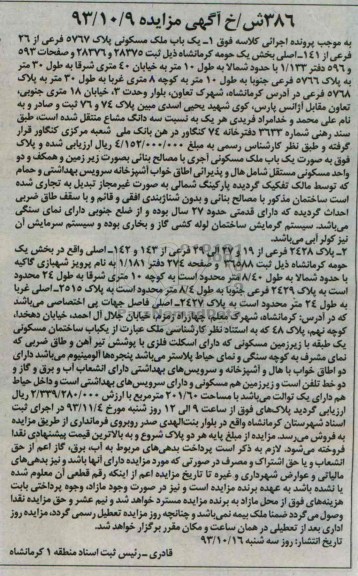 ۳۸۶ش/خ آگهی مزایده ۹۳/۱۰/۹
به موجب پرونده اجرائی کلاسه فوق ۱ـ یک باب ملک مسکونی پلاک ۵۷۶۷ فرعی از ۲۶
فرعی از ۱۴۱ـ اصلی بخش یک حومه کرمانشاه ذیل ثبت ۲۸۳۷۵ و ۲۸۳۷۶ و صفحات ۵۹۳
و ۵۹۶ دفتر ۱/۱۳۳ با حدود شمالا به طول ۱۰ متر به خیابان ۴۰ متری شرقا به طول ۳۰ متر
به پلاک ۵۷۶۶ فرعی جنوبا به طول ۱۰ متر به کوچه ۸ متری غربا به طول ۳۰ متر به پلاک
۵۷۶۸ فرعی در آدرس کرمانشاه، شهرک تعاون، بلوار وحدت ۳، خیابان ۱۸ متری جنوبی،
تعاون مقابل آژانس پارس، کوی شهید یحیی اسدی مبین پلاک ۷۴ و ۷۶ ثبت و صادر و به
نام علی محمد و خدامراد فریدی هر یک به نسبت سه دانگ مشاع منتقل شده است، طبق
سند رهنی شماره ۳۶۳۳ دفترخانه ۷۴ کنگاور در رهن بانک ملی شعبه مرکزی کنگاور قرار
گرفته و طبق نظر کارشناس رسمی به مبلغ ۴/۱۵۲/۰۰۰/۰۰۰ ریال ارزیابی شده و پلاک
فوق به صورت یک باب ملک مسکونی آجری با مصالح بنائی بصورت زیر زمین و همکف و دو
واحد مسکونی مستقل شامل هال و پذیرائی اطاق خواب آشپزخانه سرویس بهداشتی و حمام
که توسط مالک تفکیک گردیده پارکینگ شمالی به صورت غیرمجاز تبدیل به تجاری شده
است ساختمان مذکور با مصالح بنائی و بدون شناژبندی افقی و قائم و با سقف طاق ضربی
احداث گردیده که دارای قدمتی حدود ۲۷ سال بوده و از ضلع جنوبی دارای نمای سنگی
می‌باشد. سیستم گرمایش ساختمان لوله کشی گاز و بخاری بوده و سیستم سرمایش آن
نیز کولر آبی می‌باشد.
۲ـ پلاک ۲۴۲۸ فرعی از ۱۹ و ۲۷ و ۲۹ فرعی از ۱۴۳ و ۱۴۲ـ اصلی واقع در بخش یک
حومه کرمانشاه ذیل ثبت ۳۶۵۸۸ و صفحه ۲۷۴ دفتر ۱/۱۸۱ به نام پرویز شهبازی گاکیه
با حدود شمالا به طول ۸/۴۰ متر محدود است به کوچه ۱۰ متری شرقا به طول ۲۴ محدود
است به پلاک ۲۴۲۹ فرعی جنوبا به طول ۸/۴ متر محدود است به پلاک ۲۰۱۵ـ اصلی غربا
به طول ۲۴ متر محدود است به پلاک ۲۴۲۷ـ اصلی فاصل جهات پی اختصاصی می‌باشد
که در آدرس: کرمانشاه، شهرک معلم، چهارراه دوم، خیابان جلال آل احمد، خیابان دهخدا،
کوچه نهم، پلاک ۴۸ که به استناد نظر کارشناسی ملک عبارت از یکباب ساختمان مسکونی
یک طبقه با زیرزمین مسکونی که دارای اسکلت فلزی با پوشش تیر آهن و طاق ضربی که
نمای مشرف به کوچه سنگی و نمای حیاط پلاستر می‌باشد پنجره‌ها آلومینیوم می‌باشد دارای
دو اطاق خواب با هال و آشپزخانه و سرویس‌های بهداشتی دارای انشعاب آب و برق و گاز و
دو خط تلفن است و زیرزمین هم مسکونی و دارای سرویس‌های بهداشتی است و داخل حیاط
هم دارای یک توالت می‌باشد با مساحت ۲۰۱/۶۰ مترمربع با ارزش ۲/۳۳۹/۲۸۰/۰۰۰ ریال
ارزیابی گردید پلاک‌های فوق از ساعت ۹ الی ۱۲ روز شنبه مورخ ۹۳/۱۱/۴ در اجرای ثبت
اسناد شهرستان کرمانشاه واقع در بلوار بنت‌الهدی صدر روبروی فرمانداری از طریق مزایده
به فروش می‌رسد. مزایده از مبلغ پایه هر دو پلاک شروع و به بالاترین قیمت پیشنهادی نقدا
فروخته می‌شود. لازم به ذکر است پرداخت بدهی‌های مربوط به آب، برق، گاز اعم از حق
انشعاب و یا حق اشتراک و مصرف در صورتی که مورد مزایده دارای آنها باشد و نیز بدهی‌های
مالیاتی و عوارض شهرداری و غیره تا تاریخ مزایده اعم از اینکه رقم قطعی آن معلوم شده
یا نشده باشد به عهده برنده مزایده است و نیز در صورت وجود مازاد، وجوه پرداختی بابت
هزینه‌های فوق از محل مازاد به برنده مزایده مسترد خواهد شد و نیم عشر و حق مزایده نقدا
وصول می‌گردد ضمنا ملک بیمه نمی‌باشد و چنانچه روز مزایده تعطیل رسمی گردد، مزایده روز
اداری بعد از تعطیلی در همان ساعت و مکان مقرر برگزار خواهد شد.
تاریخ انتشار: روز سه شنبه ۹۳/۱۰/۱۶
قادری ـ رئیس ثبت اسناد منطقه ۱ کرمانشاه